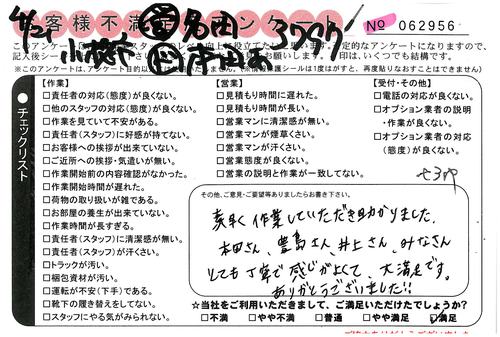 お客様不満足アンケート
No 062956
※このアンケートは、アンケート目的以外
【作業】
□責任者の対応(態度)が良くない。
□他のスタッフの対応(態度)が良くない。
□作業を見ていて不安がある。
□責任者(スタッフ)に好感が持てない。
□お客様への挨拶が出来ていない。
□ご近所への挨拶・気遣いが無い。
□作業開始前の内容確認がなかった。
□作業開始時間が遅れた。
□荷物の取り扱いが雑である。
□お部屋の養生が出来ていない。
□作業時間が長すぎる。
□責任者(スタッフ)に清潔感が無い。
□責任者(スタッフ)が汗くさい。
□トラックが汚い。
□梱包資材が汚い。
□運転が不安(下手)である。
□靴下の履き替えをしてない。
□スタッフにやる気がみられない。
【営業】
□見積もり時間に遅れた。
□見積もり時間が長い。
□営業マンに清潔感が無い。
□営業マンが煙草くさい。
□営業マンが汗くさい。
□営業態度が良くない。
□営業の説明と作業が一致してない。
【受付・その他】
□電話の対応が良くない。
□オプション業者の説明
・作業が良くない。
□オプション業者の対応
(態度)が良くない。
チェックリスト
その他、ご意見・ご要望等ありましたらお書き下さい。
素早く作業していただき助かりました。
本田さん、豊島さん、井上さん、みなさん
とても丁寧で感じが良くて、大満足です。
ありがとうございました!!
☆当社をご利用いただきまして、ご満足いただけたでしょうか?
□不満 □やや不満 □普通 □やや満足 ☑満足